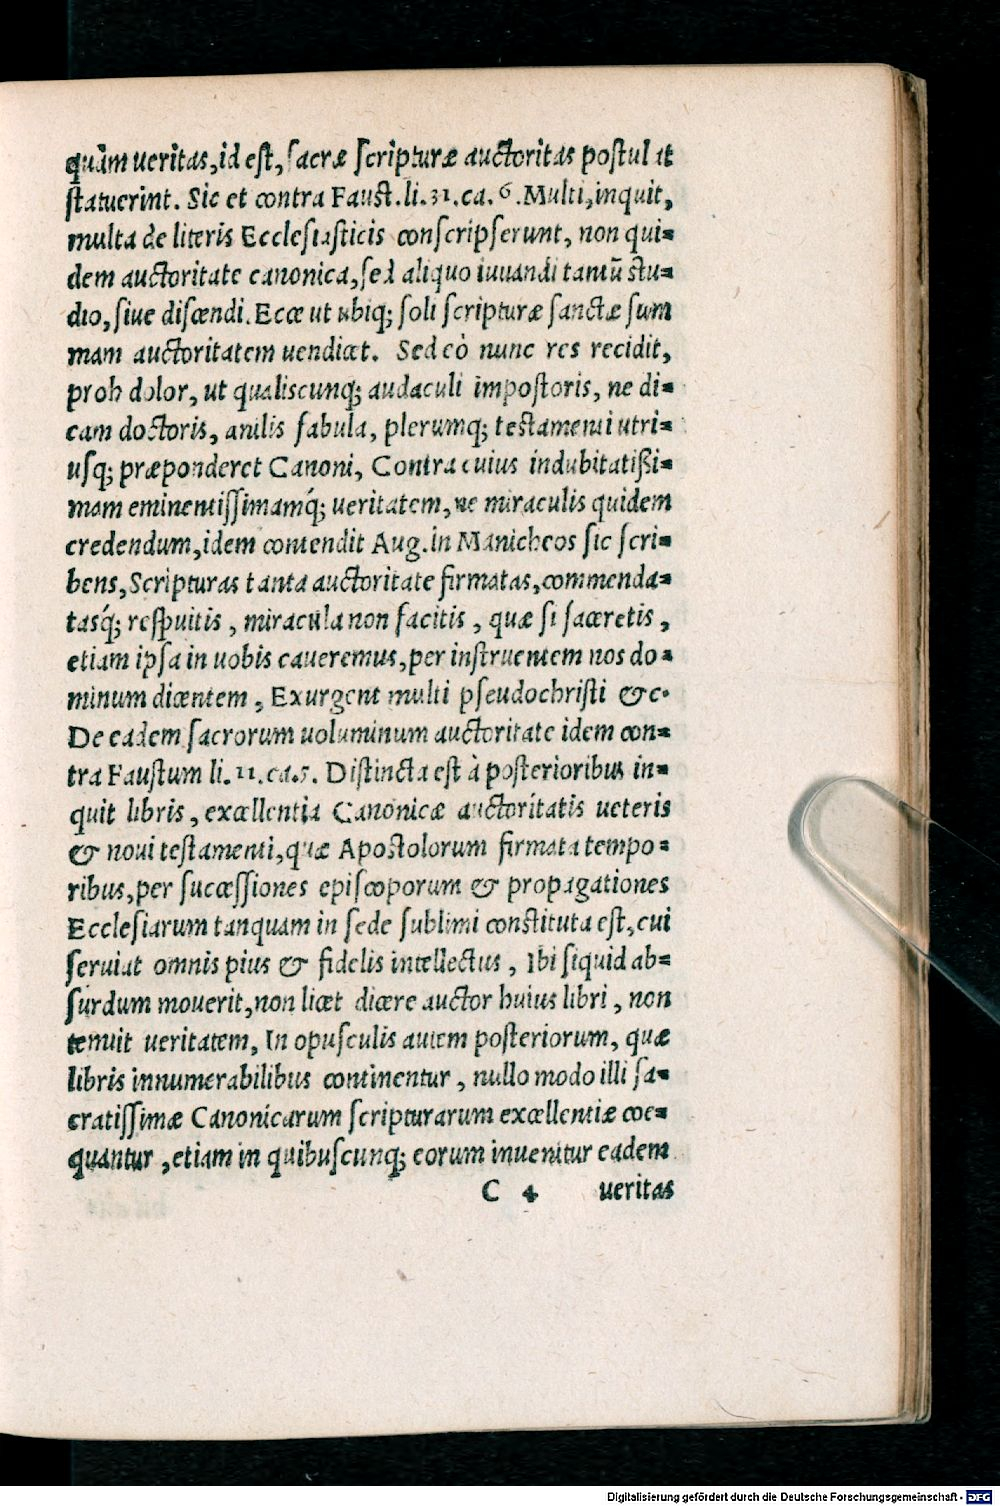 quàm ueritas, id est, sacræ scripturæ auctoritas postulat
statuerint. Sic et contra Faust. li. 31. ca. 6. Multi, inquit,
multa de literis Ecclesiasticis conscripserunt, non qui=
dem auctoritate canonica, sed aliquo iuuandi tantũ stu=
dio, siue discendi. Ecce ut ubiq; soli scripturæ sanctæ sum
mam auctoritatem uendicet. Sed eò nunc res recidit,
proh dolor, ut qualiscunq; audaculi impostoris, ne di=
cam doctoris, anilis fabula, plerumq; testamenti utri=
usq; præponderet Canoni, Contra cuius indubitatißi=
mam eminentissimamq́; ueritatem, ne miraculis quidem
credendum, idem contendit Aug. in Manicheos sic scri=
bens, Scripturas tanta auctoritate firmatas, commenda=
tasq́; respuitis, miracula non facitis, quæ si faceretis,
etiam ipsa in uobis caueremus, per instruentem nos do=
minum dicentem, Exurgent multi pseudochristi &c.
De eadem sacrorum uoluminum auctoritate idem con=
tra Faustum li. 11. ca. 5. Distincta est à posterioribus in=
quit libris, excellentia Canonicæ auctoritatis ueteris
& noui testamenti, quæ Apostolorum firmata tempo=
ribus, per successiones episcoporum & propagationes
Ecclesiarum tanquam in sede sublimi constituta est, cui
seruiat omnis pius & fidelis intellectus, Ibi siquid ab=
surdum mouerit, non licet dicere auctor huius libri, non
tenuit ueritatem, In opusculis autem posteriorum, quæ
libris innumerabilibus continentur, nullo modo illi sa=
cratissimæ Canonicarum scripturarum excellentiæ coe=
quantur, etiam in quibuscunq; eorum inuenitur eadem
C 4 ueritas
Digitalisierung gefördert durch die Deutsche Forschungsgemeinschaft - DFG